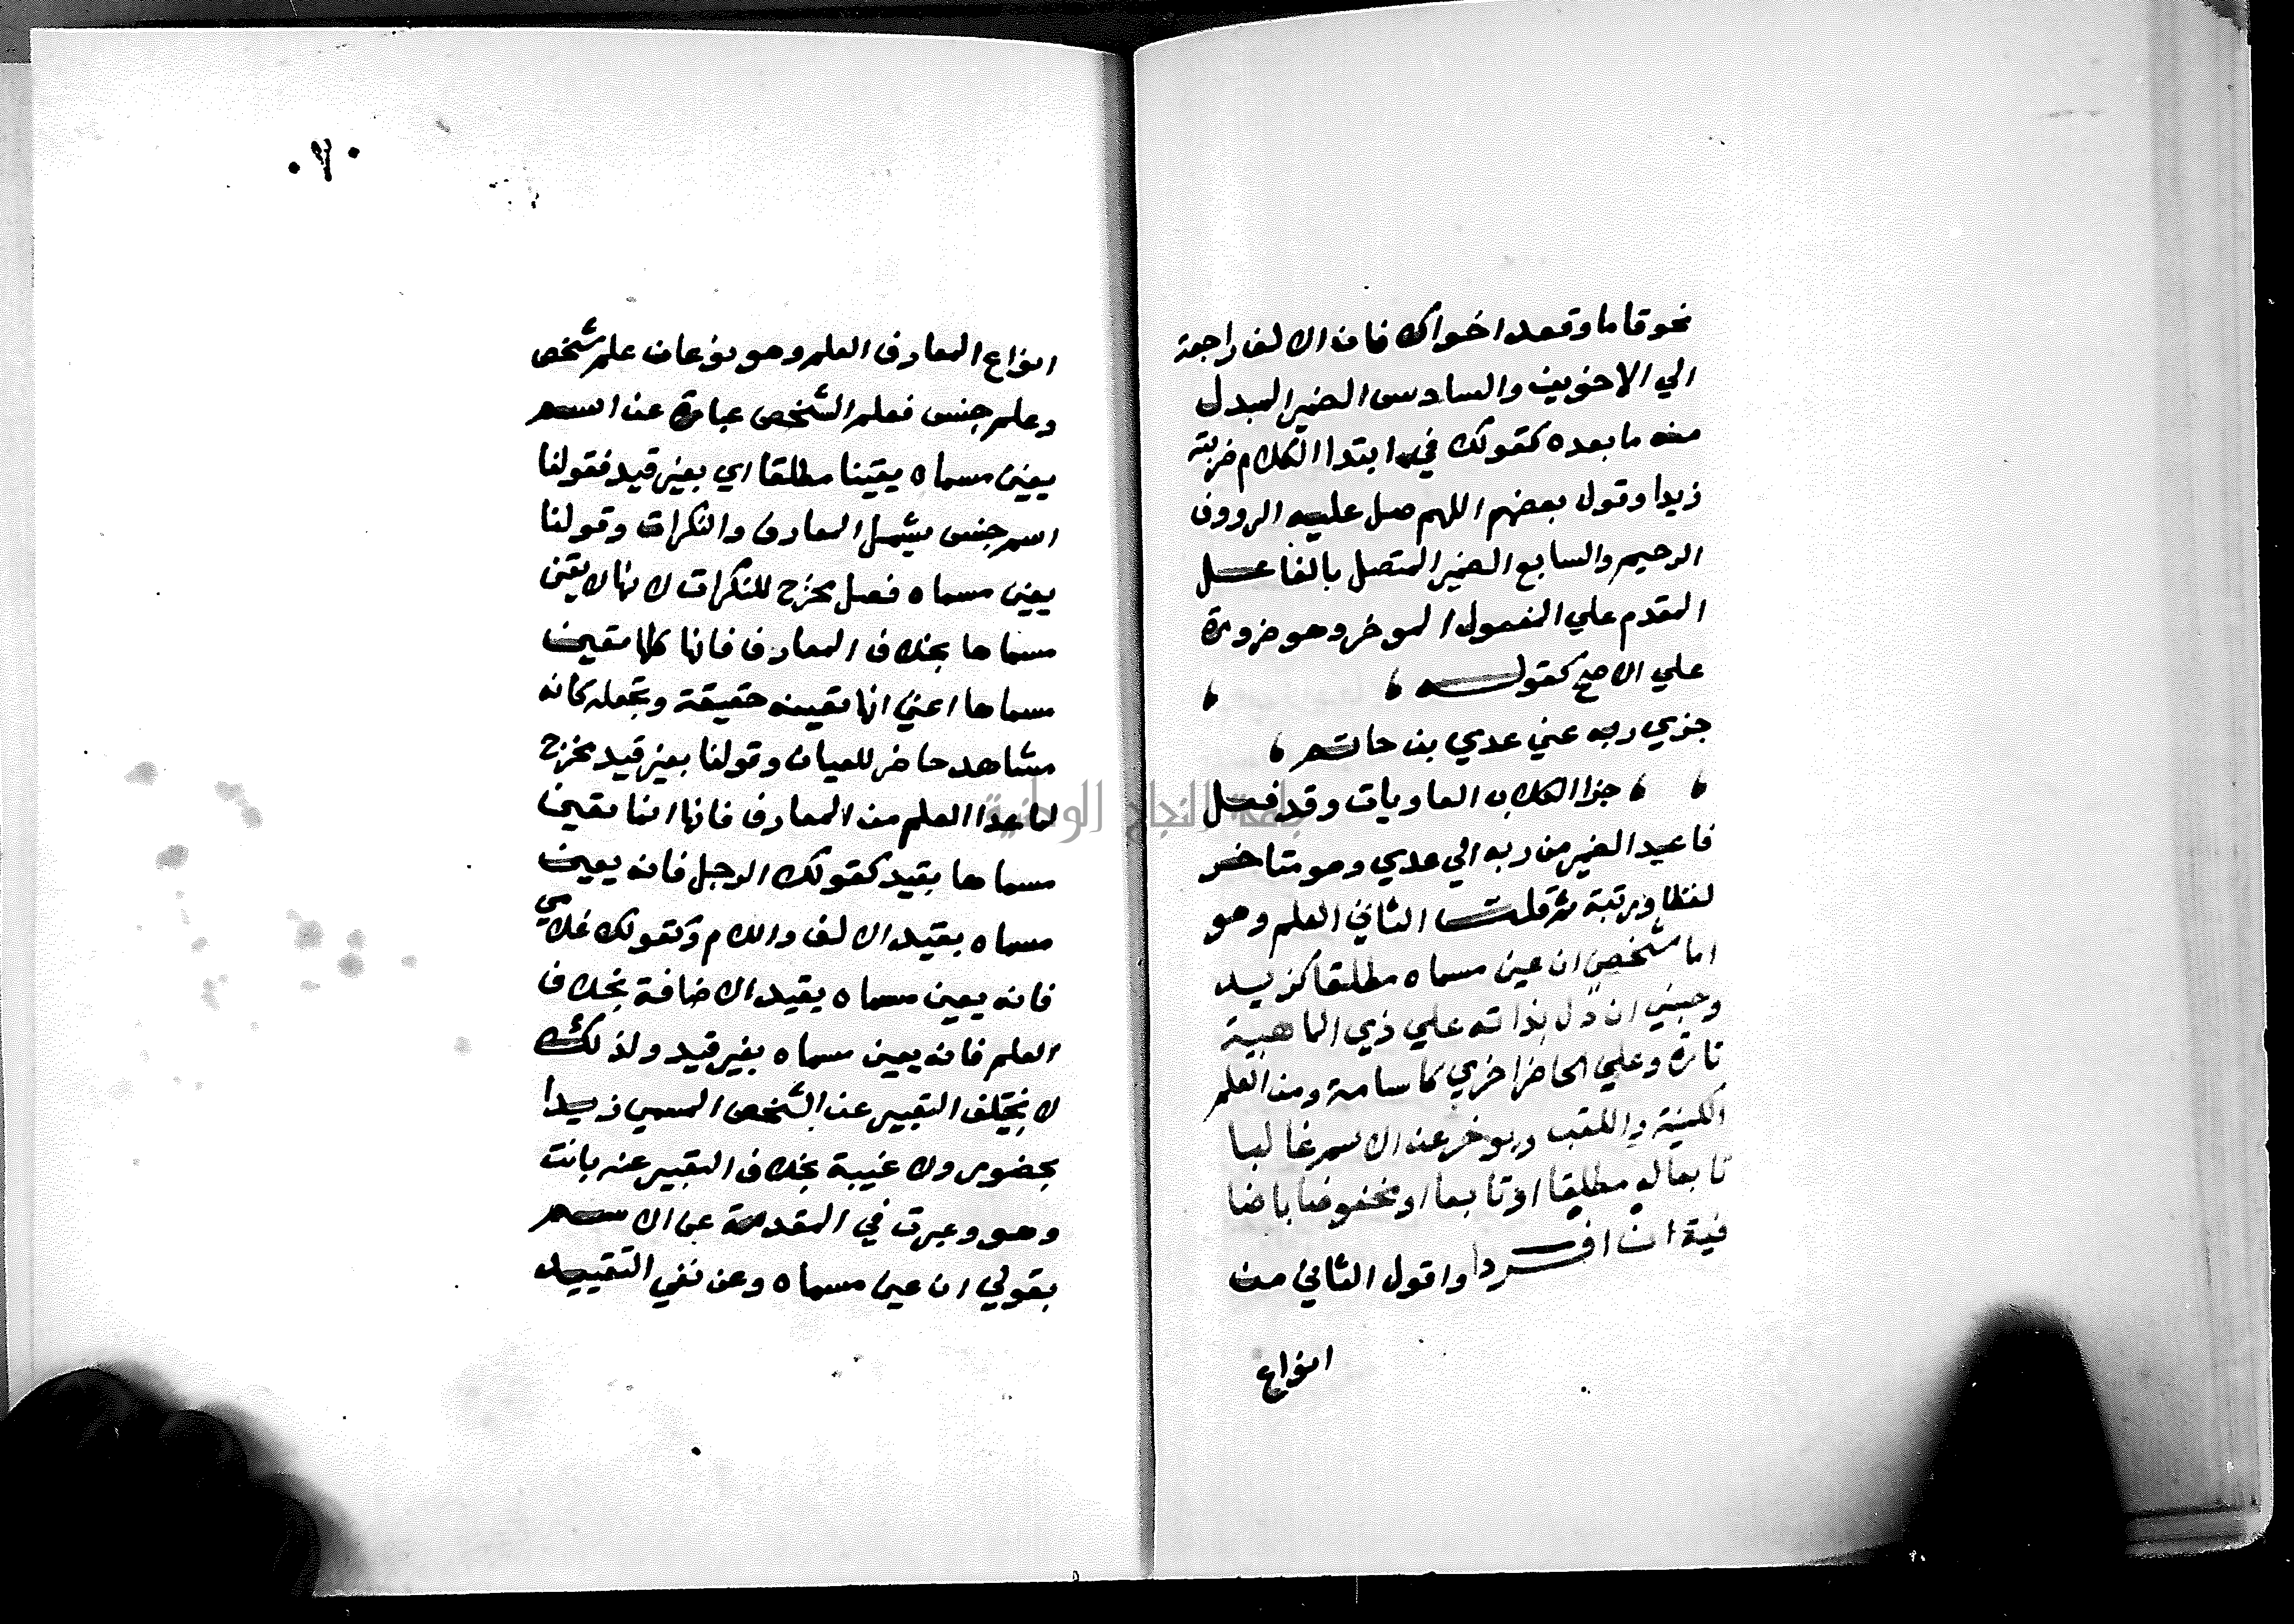 نحو قاما وقعد اخواك فان الالف راجعة
الي الاخوين والسادس الضمير المبدل
منه ما بعده كقولك في ابتدا الكلام ضربته
زيدا وقول بعضهم اللهم صل عليه الرووف
الرحيم والسابع الضمير المتصل بالفاعل
المقدم علي المفعول الموخر وهو ضرورة
علي الاصح كقوله
جزي ربه عني عدي بن حاتم
جزا الكلاب العاويات وقد فعل
فاعيد الضمير من ربه الي عدي وهو متاخر
لفظا ورتبة ثم قلت الثاني العلم وهو
اما شخصي ان عين مسماه مطلقا كزيد
وجنسي ان دل بذاته علي ذي الماهية
تارة وعلي الحاضر اخري كاسامة ومن العلم
الكنية واللقب ويوخر عن الاسم غالبا
تابعا له مطلقا او تابعا او مخفوضا باضا
فية ان افردا واقول الثاني من
انواع
٦٠
انواع المعارف العلم وهو نوعان علم شخص
وعلم جنس فعلم الشخص عبارة عن اسم
يعين مسماه يقينا مطلقا اي بغير قيد فقولنا
اسم جنس يشمل المعارف والنكرات وقولنا
يعين مسماه فصل مخرج للنكرات لانها لا تعين
مسماها بخلاف المعارف فانها كلها تعين
مسماها اعني انها تعينه حقيقة وتجعله كانه
مشاهد حاضر للعيان وقولنا بغير قيد مخرج
لما عدا العلم من المعارف فانها انما تعين
مسماها بقيد كقولك الرجل فانه يعين
مسماه بقيد الالف واللام وكقولك غلامي
فانه يعين مسماه بقيد الاضافة بخلاف
العلم فانه يعين مسماه بغير قيد ولذلك
لا يختلف التعبير عن الشخص المسمي زيدا
بحضور ولا غيبة بخلاف التعبير عنه بانت
وهو وعبرت في المقدمة عن الاسم
بقولي ان عين مسماه وعن نفي التقييد
جامعة النجاح الوطنية